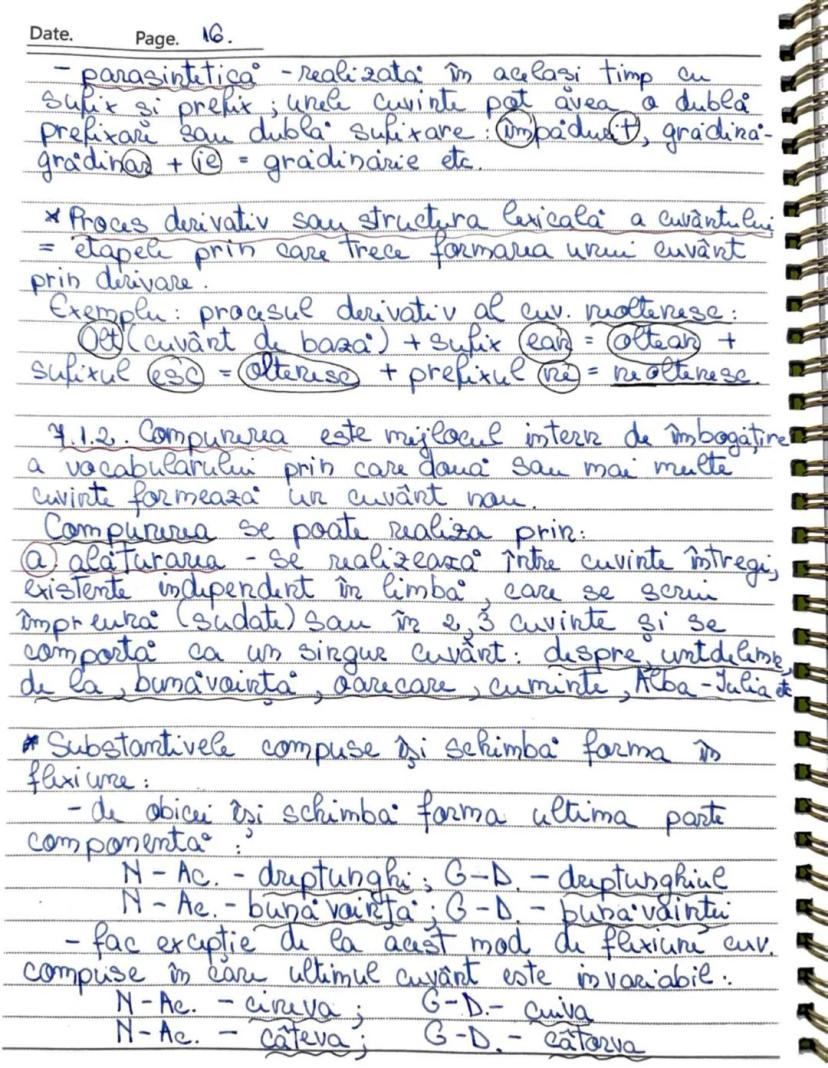 Date. Page. 16.
- parasintetică - realizată în același timp cu
sufix și prefix; unele cuvinte pot avea o dublă
prefixare sau dublă sufixare: împădurit, grădină-
grădinar + ie = grădinărie etc.
* Proces derivativ sau structura lexicală a cuvântului
= etapele prin care trece formarea unui cuvânt
prin derivare.
Exemplu: procesul derivativ al cuv. neoltenesc:
Olt (cuvânt de bază) + sufix ean = oltean +
sufixul esc = oltenesc + prefixul ne = neoltenesc.
7.1.2. Compunerea este mijlocul intern de îmbogățire
a vocabularului prin care două sau mai multe
cuvinte formează un cuvânt nou.
Compunerea se poate realiza prin:
a) alăturarea - se realizează între cuvinte întregi,
existente independent în limbă, care se scriu
împreună (sudate) sau în 2, 3 cuvinte și se
comportă ca un singur cuvânt: despre, untdelemn,
de la, bunăvoință, oarecare, cuminte, Alba-Iulia etc
* Substantivele compuse își schimbă forma în
flexiune:
- de obicei își schimbă forma ultima parte
componentă:
N-Ac. - dreptunghi; G-D. - dreptunghiul
N-Ac. - bunăvoință; G-D. - bunăvoinței
- fac excepție de la acest mod de flexiune cuv.
compuse în care ultimul cuvânt este invariabil:
N-Ac. - cineva; G-D. - cuiva
N-Ac. - câteva; G-D. - câtorva